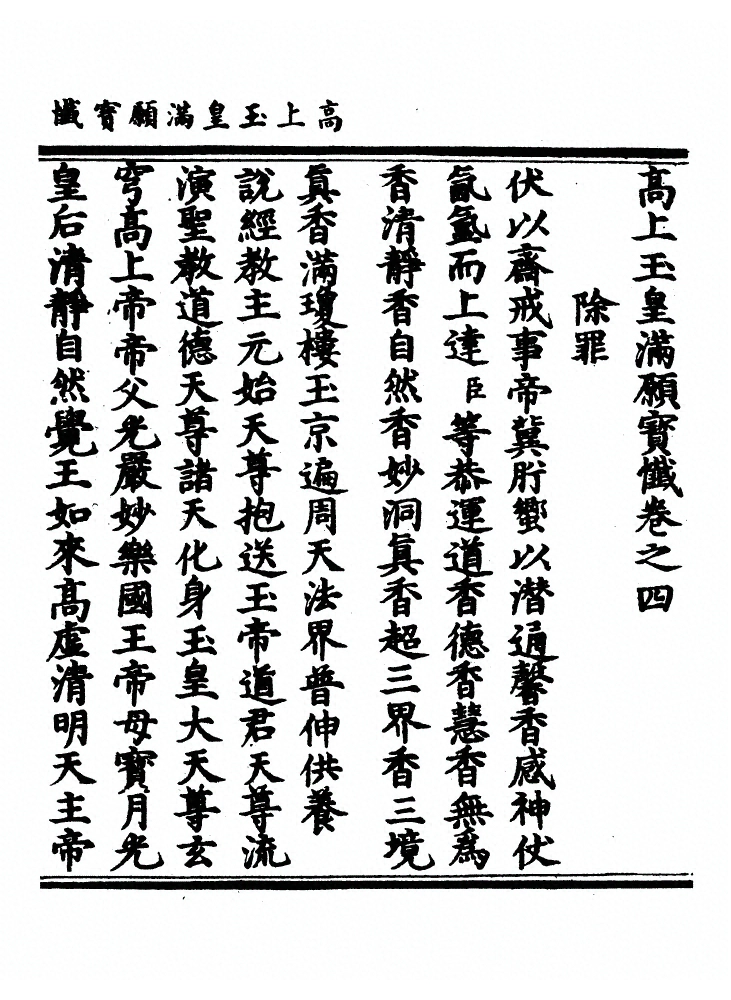 高上玉皇滿願寶懺
高上玉皇滿願寶懺卷之四
除罪
伏以齋戒事帝冀肸蠁以潛通馨香感神伏
氤氳而上達臣等恭運道香德香慧香無爲
香清靜香自然香妙洞眞香超三界香三境
眞香滿瓊樓玉京遍周天法界普伸供養
說經教主元始天尊抱送玉帝道君天尊流
演聖教道德天尊諸天化身玉皇大天尊玄
穹高上帝帝父光嚴妙樂國王帝母寶月光
皇后清靜自然覺王如來高虛清明天主帝